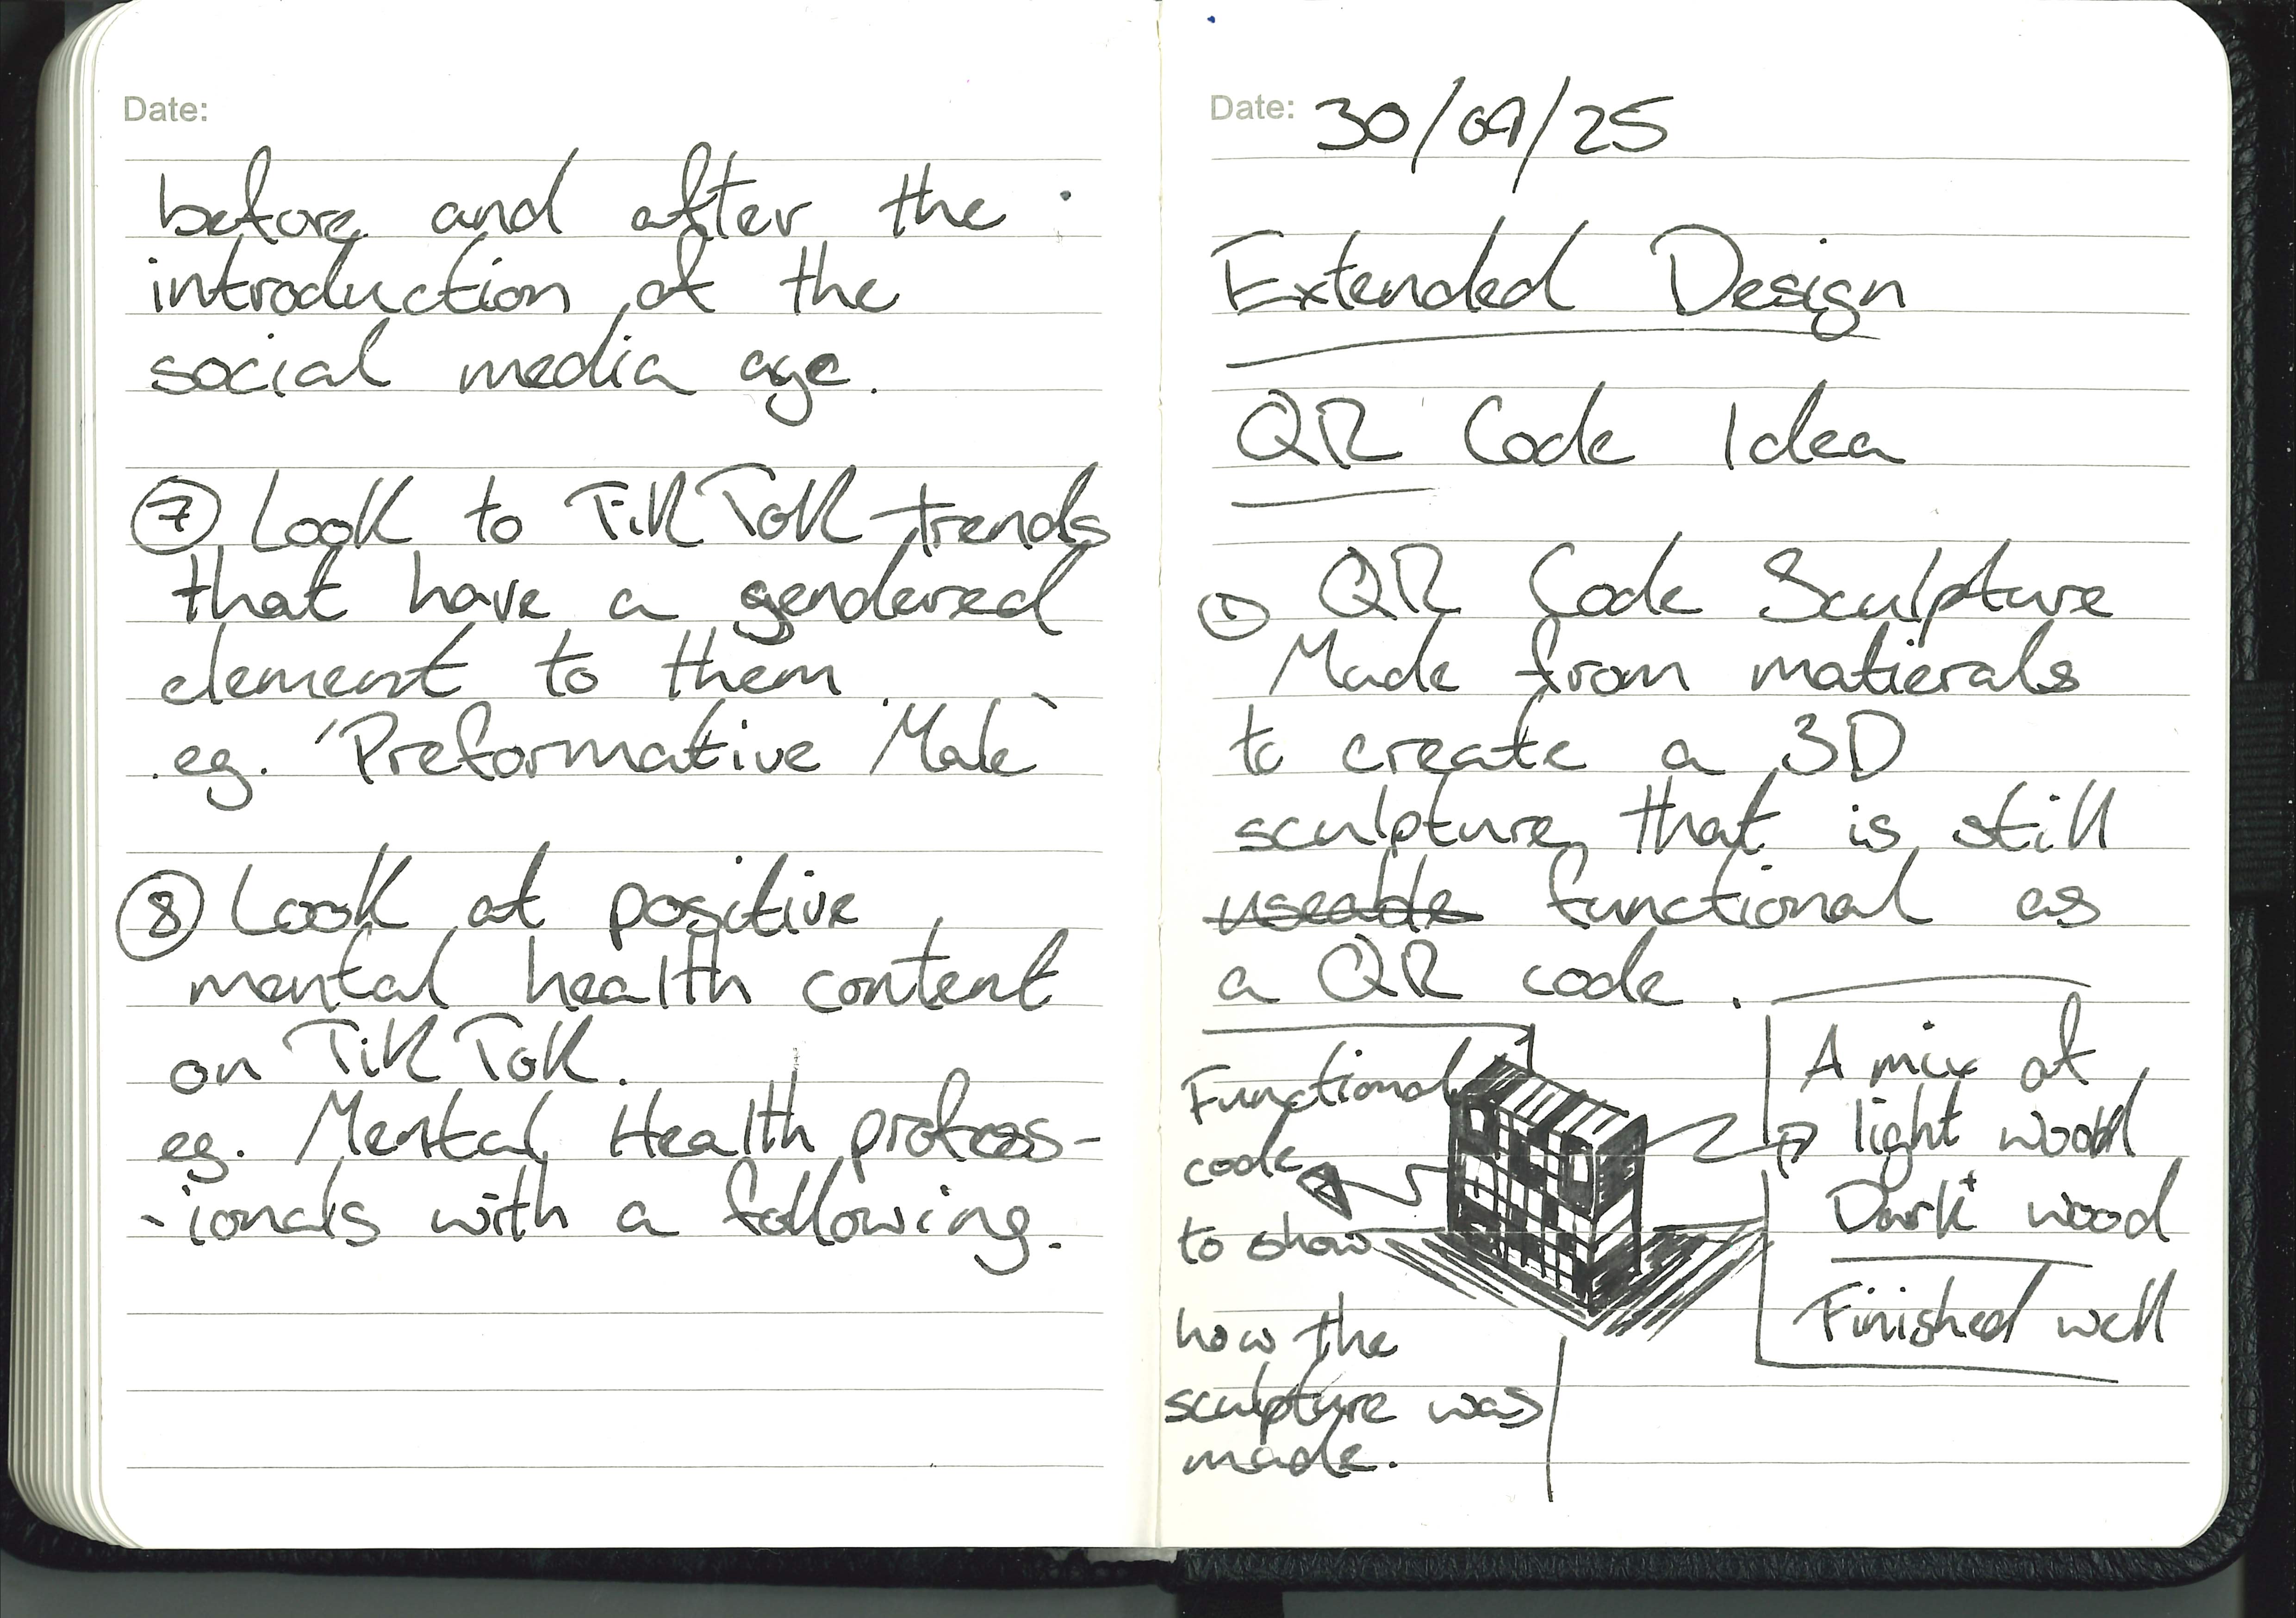 Date:
before and after the
introduction of the
social media age.
⑦ Look to TikTok trends
that have a gendered
element to them.
eg. 'Preformative Male'
⑧ Look at positive
mental health content
on TikTok.
eg. Mental Health profess-
-ionals with a following.
Date: 30/09/25
Extended Design
QR Code Idea
① QR Code Sculpture
Made from matierals
to create a 3D
sculpture that is still
useable functional as
a QR code.
Functional
code
to show
how the
sculpture was
made.
A mix of
light wood
+
Dark wood
Finished well